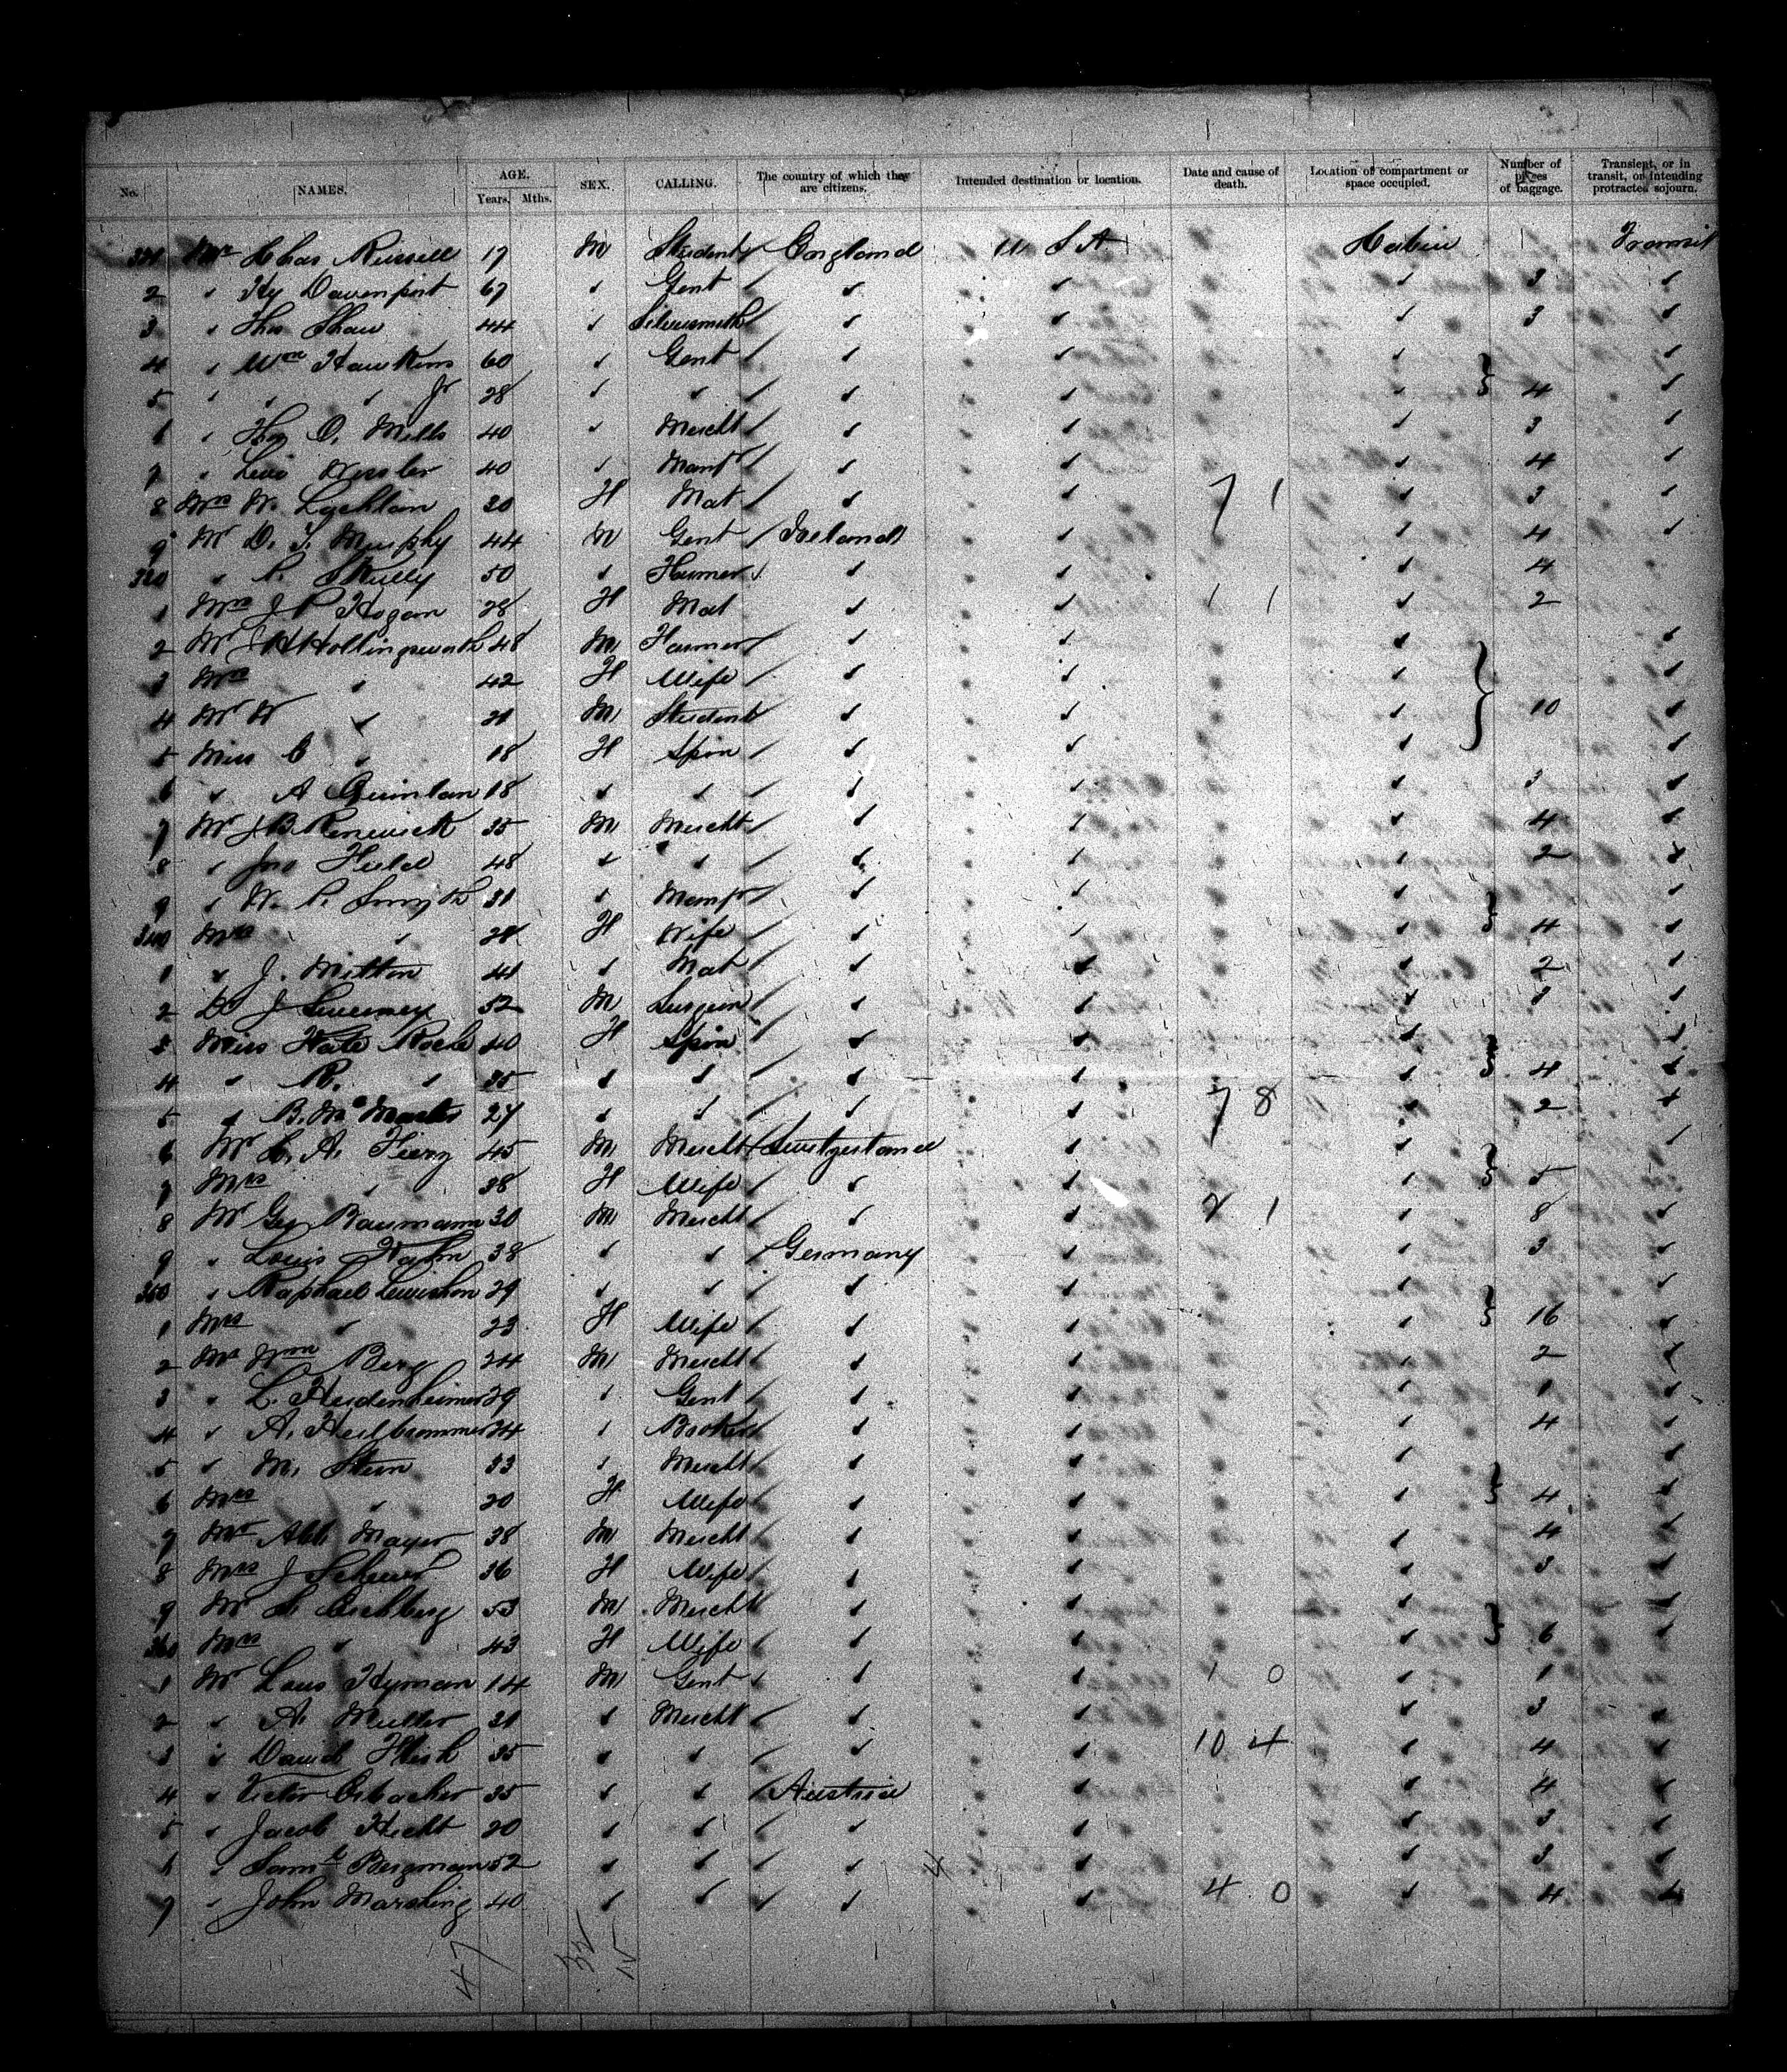 No. NAMES. AGE. Years. Mths. SEX. CALLING. The country of which they are citizens. Intended destination or location. Date and cause of death. Location of compartment or space occupied. Number of pieces of baggage. Transient, or in transit, or intending protracted sojourn.
Mr Chas Russell 17 M Student England U S A Cabin Transit
2 " Hy Davenport 67 " Gent " " " 3 "
3 " Thos Shaw 44 " Silversmith " " " 3 "
4 " Wm Hawkins 60 " Gent " " " "
5 " " " Jr 28 " " " " " 4 "
6 " Hy O. Mills 40 " Mercht " " " 3 "
7 " Levi 40 " Manfr " " " 4 "
8 Mrs W. Lachlan 30 F Mat " " 7 1 " 3 "
9 Mr D. F. Murphy 44 M Gent Ireland " " 4 "
330 " P. Skully 50 " Farmer " " " 4
1 Mrs J P Hogan 28 F Mat " " 1 1 " 2
2 Mr J H Hollingsworth 48 M Farmer " " " "
3 Mrs " 42 F Wife " " " "
4 Mr W " 21 M Student " " " 10 "
5 Miss C " 18 F Spin " " " "
6 " A Quinlan 18 " " " " " 3 "
7 Mr J B Renwick 35 M Mercht " " " 4 "
8 " Jno Field 48 " " " " " 2 "
9 " W. P. Smyth 31 " Manfr " " " "
340 Mrs " 28 F Wife " " " 4 "
1 " J. Mitton 41 " Mat " " " 2 "
2 Dr J Sweeney 52 M Surgeon " " " "
3 Miss Kate 40 F Spin " " " "
4 " R. " 35 " " " " " 4 "
5 " B. 27 " " " " 7 8 " 2 "
6 Mr C. A. 45 M Mercht Switzerland " " "
7 Mrs " 38 F Wife " " " 5 "
8 Mr Geo Baumann 30 M Mercht " " 2 1 " 8 "
9 " Louis Hahn 38 " " Germany " " 3 "
350 " Raphael Lewishon 29 " " " " " "
1 Mrs " 23 F Wife " " " 16 "
2 Mr Wm Berg 24 M Mercht " " " 2 "
3 " L. Heidenheimer 29 " Gent " " " 1 "
4 " A. Heilbronner 24 " Broker " " " 4 "
5 " M. Stern 33 " Mercht " " " "
6 Mrs " 20 F Wife " " " 4 "
7 Mr Ab. Mayer 38 M Mercht " " " 4 "
8 Mrs J Scheuer 36 F Wife " " " 3 "
9 Mr L. Eichberg 53 M Mercht " " " "
360 Mrs " 43 F Wife " " " 6 "
1 Mr Louis Hyman 14 M Gent " " 1 0 " 1 "
2 " A. Muller 21 " Mercht " " " 3 "
3 " David 35 " " " " 10 4 " 4 "
4 " Victor 35 " " Austria " " 4 "
5 " Jacob Hecht 20 " " " " " 3 "
6 " Saml Bergman 52 " " " 4 " " 3 "
7 " John Marshing 40 " " " " 4 0 " 4 "
47 32 15